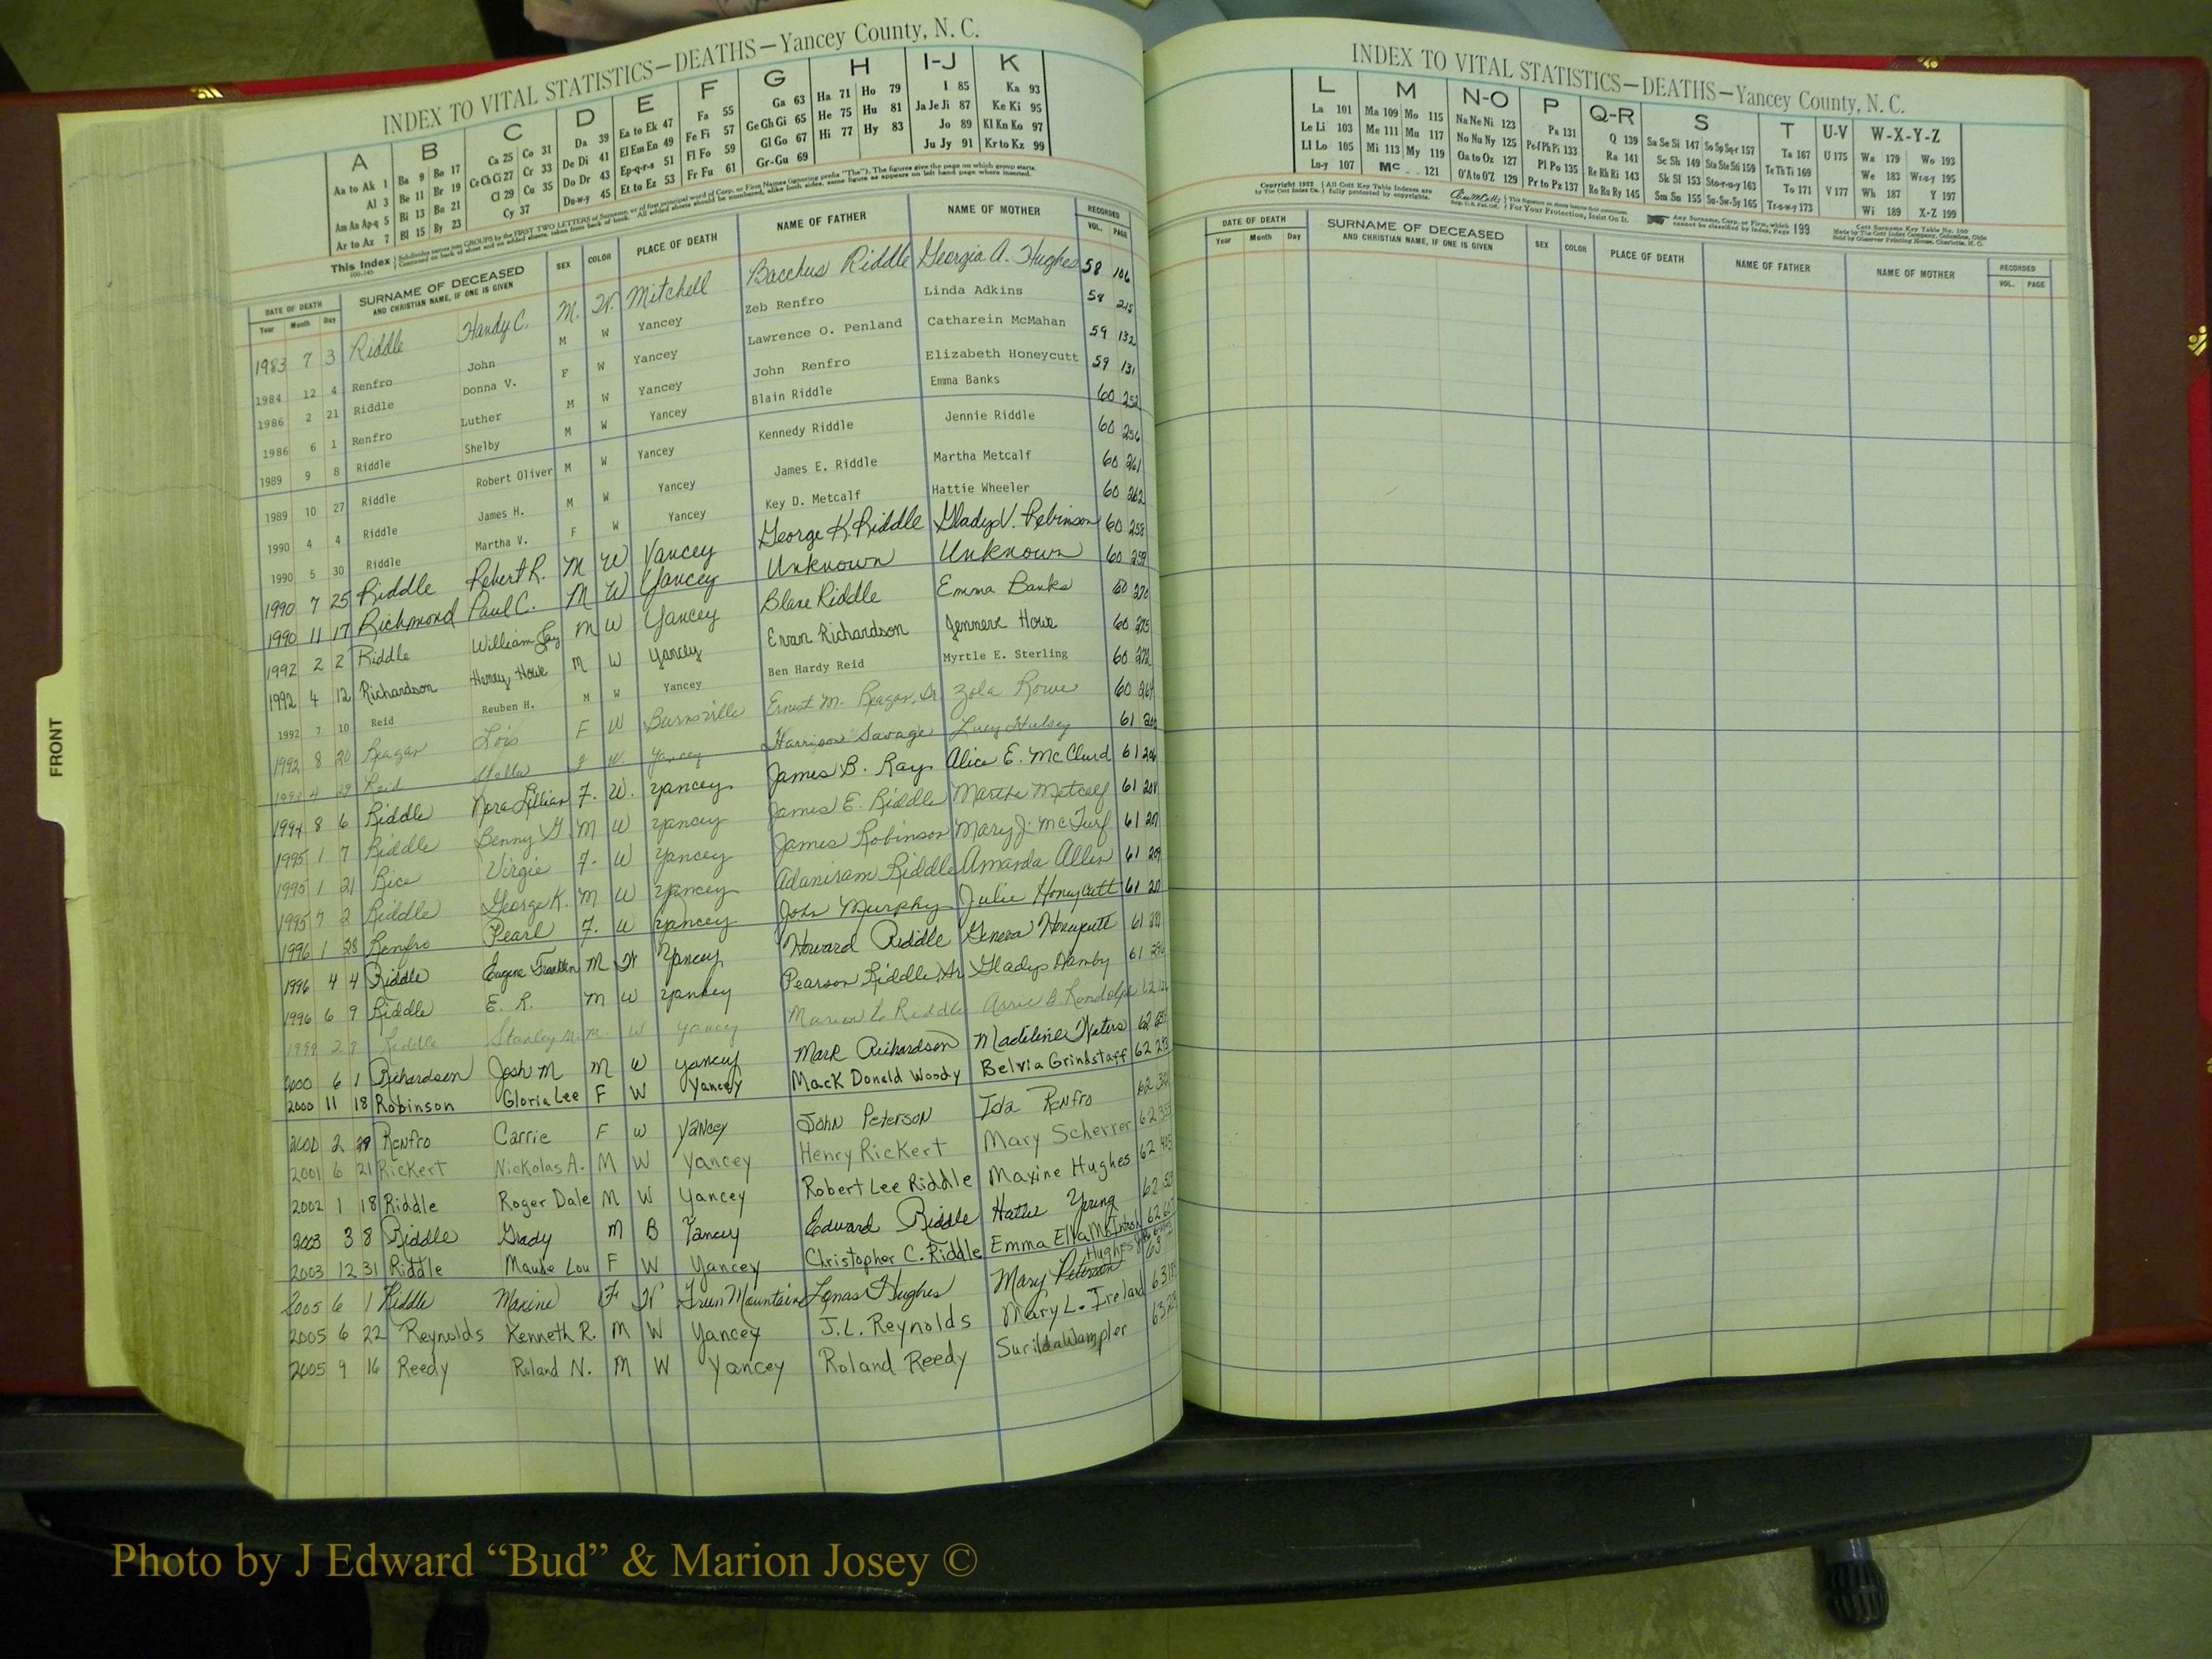 INDEX TO VITAL STATISTICS—DEATHS—Yancey County, N. C.
A B C D E F G H I-J K
Aa to Ak 1 Ba 9 Bo 17 Ca 25 Co 31 Da 39 Ea to Ek 47 Fa 55 Ga 63 Ha 71 Ho 79 I 85 Ka 93
Al 3 Be 11 Br 19 Ce Ch Ci 27 Cr 33 De Di 41 El Em En 49 Fe Fi 57 Ge Gh Gi 65 He 75 Hu 81 Ja Je Ji 87 Ke Ki 95
Am An Ap-q 5 Bi 13 Bu 21 Cl 29 Cu 35 Do Dr 43 Ep-q-r-s 51 Fl Fo 59 Gl Go 67 Hi 77 Hy 83 Jo 89 Kl Kn Ko 97
Ar to Az 7 Bl 15 By 23 Cy 37 Du-w-y 45 Et to Ez 53 Fr Fu 61 Gr-Gu 69 Ju Jy 91 Kr to Kz 99
This Index Subdivides names into GROUPS by the FIRST TWO LETTERS of Surname, or of first principal word of Corp. or Firm Names (ignoring prefix "The"). The figures give the page on which group starts.
Continued on back of sheet and on added sheets, taken from back of book. All added sheets should be numbered, alike both sides, same figure as appears on left hand page where inserted.
DATE OF DEATH SURNAME OF DECEASED SEX COLOR PLACE OF DEATH NAME OF FATHER NAME OF MOTHER RECORDED
Year Month Day AND CHRISTIAN NAME, IF ONE IS GIVEN VOL. PAGE
1983 7 3 Riddle Handy C. M. W. Mitchell Bacchus Riddle Georgia A. Hughes 58 106
1984 12 4 Renfro John M W Yancey Zeb Renfro Linda Adkins 58 215
1986 2 21 Riddle Donna V. F W Yancey Lawrence O. Penland Catharein McMahan 59 132
1986 6 1 Renfro Luther M W Yancey John Renfro Elizabeth Honeycutt 59 131
1989 9 8 Riddle Shelby M W Yancey Blain Riddle Emma Banks 60 252
1989 10 27 Riddle Robert Oliver M W Yancey Kennedy Riddle Jennie Riddle 60 256
1990 4 4 Riddle James H. M W Yancey James E. Riddle Martha Metcalf 60 261
1990 5 30 Riddle Martha V. F W Yancey Key D. Metcalf Hattie Wheeler 60 262
1990 7 25 Riddle Robert R. M W Yancey George K. Riddle Gladys V. Robinson 60 258
1990 11 17 Richmond Paul C. M W Yancey Unknown Unknown 60 259
1992 2 2 Riddle William Jay M W Yancey Blane Riddle Emma Banks 60 270
1992 4 12 Richardson Henry Howe M W Yancey Evan Richardson Howe 60 275
1992 7 10 Reid Reuben H. M W Yancey Ben Hardy Reid Myrtle E. Sterling 60 272
1992 8 20 Reagan Lois F W Burnsville Ernest M. Reagan, Sr. Zola Rowe 60 264
1993 4 29 Reid Stella F W Yancey Harrison Savage Lucy Hulsey 61
1994 8 6 Riddle Nora Lillian F. W. Yancey James B. Ray Alice E. McClurd 61 206
1995 1 7 Riddle Benny G M W Yancey James E. Riddle Martha Metcalf 61 208
1995 1 21 Rice Virgie F. W Yancey James Robinson Mary J. 61 207
1995 7 2 Riddle George K. M W Yancey Adaniram Riddle Amanda Allen 61 209
1996 1 28 Renfro Pearl F. W Yancey John Murphy Julie Honeycutt 61
1996 4 4 Riddle Eugene Franklin M W Yancey Howard Riddle Geneva Honeycutt 61
1996 6 9 Riddle E. R. M W Yancey Pearson Riddle, Sr Gladys 61
1999 2 8 Riddle Stanley M. M. W Yancey Riddle Arrie B Randolph 62
2000 6 1 Richardson Josh M M W Yancey Mark Richardson Madeline Waters 62
2000 11 18 Robinson Gloria Lee F W Yancey Mack Donald Woody Belvia Grindstaff 62
2000 2 29 Renfro Carrie F W Yancey John Peterson Ida Renfro 62
2001 6 21 Rickert Nickolas A. M W Yancey Henry Rickert Mary Scherrer 62
2002 1 18 Riddle Roger Dale M W Yancey Robert Lee Riddle Maxine Hughes 62
2003 3 8 Riddle Grady M B Yancey Edward Riddle Hattie Young 62
2003 12 31 Riddle Maude Lou F W Yancey Christopher C. Riddle Emma Elva McIntosh 62
2005 6 1 Riddle Maxine F W Green Mountain Lonas Hughes Mary Peterson Hughes 63
2005 6 22 Reynolds Kenneth R. M W Yancey J.L. Reynolds Mary L. Ireland 63
2005 9 16 Reedy Roland N. M W Yancey Roland Reedy Surilda Wampler 63
FRONT
INDEX TO VITAL STATISTICS—DEATHS—Yancey County, N. C.
L M N-O P Q-R S T U-V W-X-Y-Z
La 101 Ma 109 Mo 115 Na Ne Ni 123 Pa 131 Q 139 Sa Se Si 147 So Sp Sq-r 157 Ta 167 U 175 Wa 179 Wo 193
Le Li 103 Me 111 Mu 117 No Nu Ny 125 Pe-f Ph Pi 133 Ra 141 Sc Sh 149 Sta Ste Sti 159 Te Th Ti 169 We 183 Wr-u-y 195
Ll Lo 105 Mi 113 My 119 Oa to Oz 127 Pl Po 135 Re Rh Ri 143 Sk Sl 153 Sto-r-u-y 163 To 171 V 177 Wh 187 Y 197
Lu-y 107 Mc 121 O'A to O'Z 129 Pr to Pz 137 Ro Ru Ry 145 Sm Sn 155 Su-Sw-Sy 165 Tr-u-w-y 173 Wi 189 X-Z 199
Copyright 1922 All Cott Key Table Indexes are
by The Cott Index Co. fully protected by copyrights. For Your Protection, Insist On It. Any Surname, Corp. or Firm, which cannot be classified by Index, Page 199
Made by The Cott Index Company, Columbus, Ohio
Sold by Observer Printing House, Charlotte, N. C.
DATE OF DEATH SURNAME OF DECEASED SEX COLOR PLACE OF DEATH NAME OF FATHER NAME OF MOTHER RECORDED
Year Month Day AND CHRISTIAN NAME, IF ONE IS GIVEN VOL. PAGE
Photo by J Edward “Bud” & Marion Josey ©